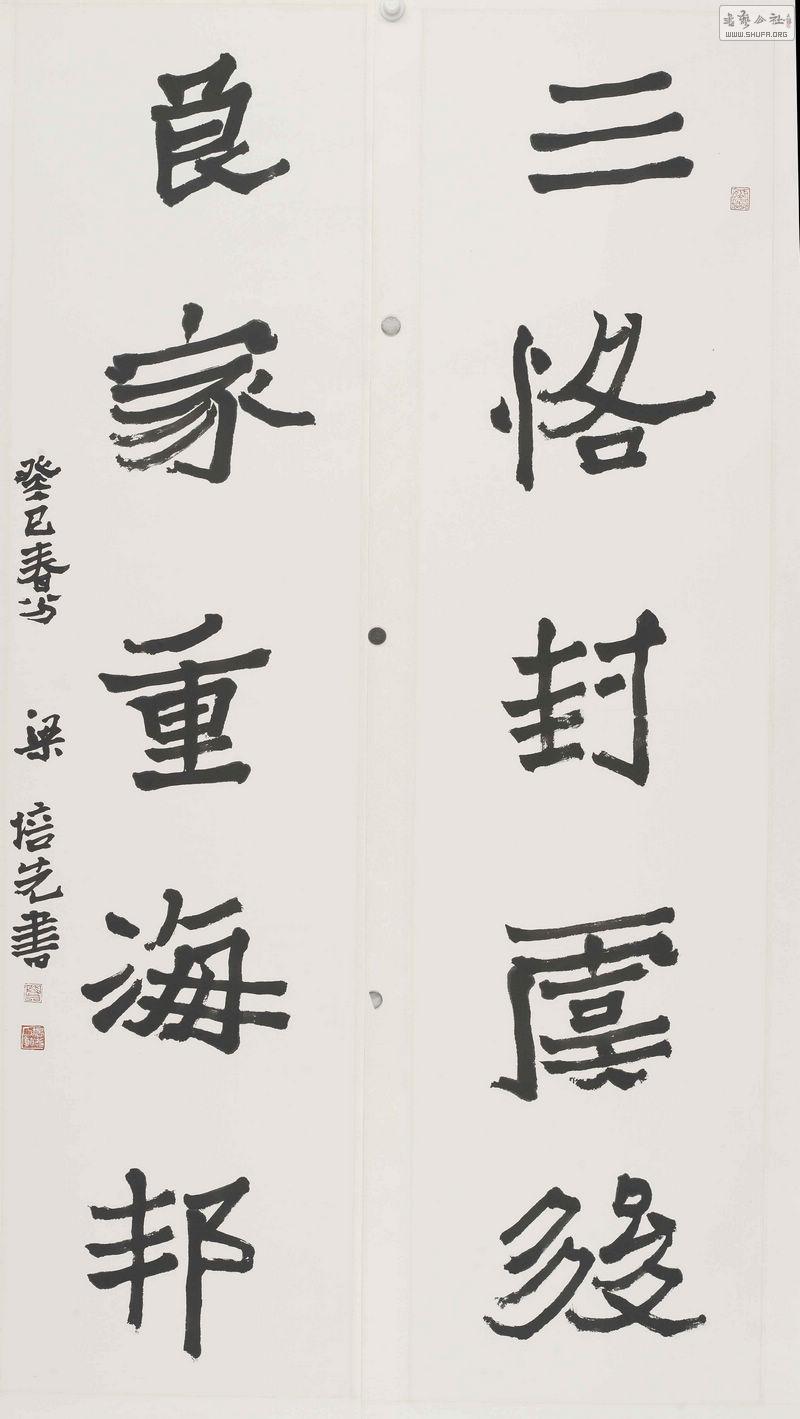 三恪封虞後
良家重海邦
癸巳春分 梁培先書
书艺公社
WWW.SHUFA.ORG